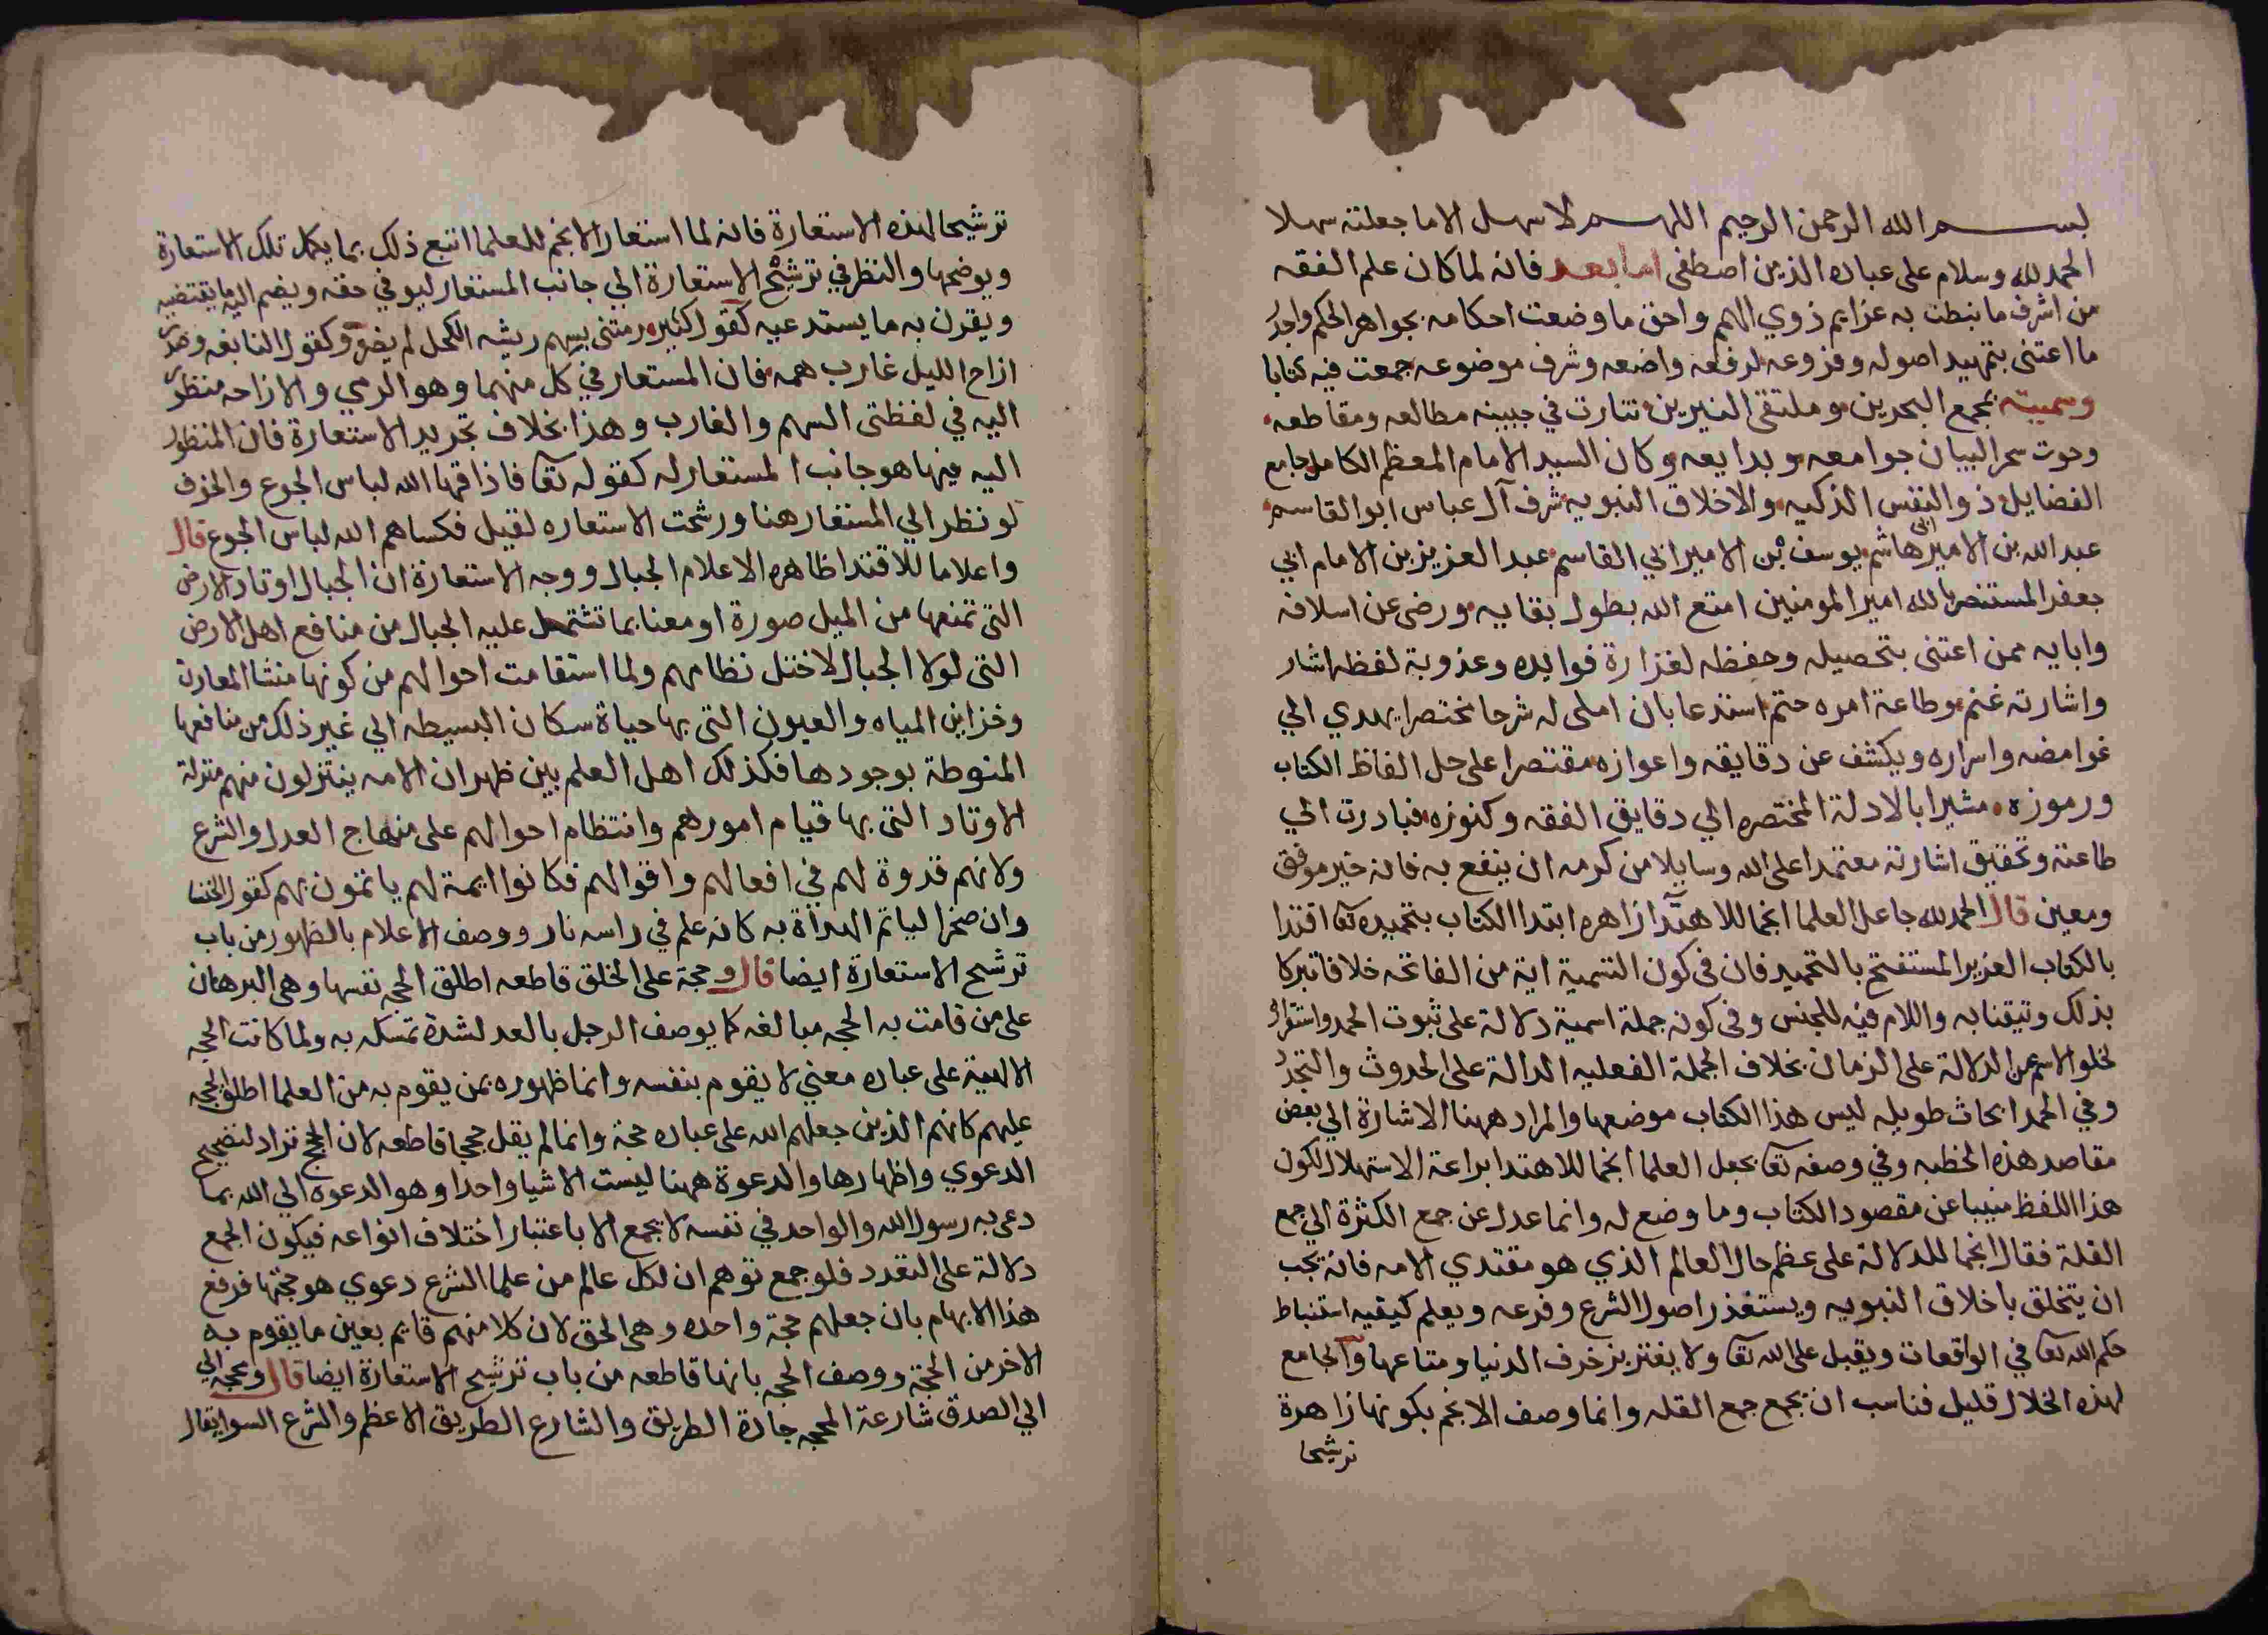 بسم الله الرحمن الرحيم اللهم لا سهل الا ما جعلته سهلا
الحمد لله وسلام على عباده الذين اصطفى اما بعد فانه لما كان علم الفقه
من اشرف ما نيطت به عزايم ذوي الهمم واحق ما وضعت احكامه بجواهر الحكم واجدر
ما اعتنى بتمهيد اصوله وفروعه لرفعه واضعه وشرف موضوعه جمعت فيه كتابا
وسميته بمجمع البحرين وملتقى النيرين تنارت في جبينه مطالعه ومقاطعه
وحوت سحر البيان جوامعه وبدايعه وكان السيد الامام المعظم الكامل جامع
الفضايل ذو النفس الذكيه والاخلاق النبويه شرف آل عباس ابو القاسم
عبد الله بن الامير ابي هاشم يوسف بن الامير ابي القاسم عبد العزيز بن الامام ابي
جعفر المستنصر بالله امير المومنين امتع الله بطول بقايه ورضى عن اسلافه
وابايه ممن اعتنى بتحصيله وحفظه لغزارة فوايده وعذوبة لفظه اشار
واشارته غنم وطاعة امره حتم استدعا بان املى له شرحا مختصرا يهدي الي
غوامضه واسراره ويكشف عن دقايقه واعوازه مقتصرا على حل الفاظ الكتاب
ورموزه مشيرا بالادلة المختصره الي دقايق الفقه وكنوزه فبادرت الي
طاعته وتحقيق اشارته معتمدا على الله وسايلا من كرمه ان ينفع به فانه خير موفق
ومعين قال الحمد لله جاعل العلما انجما للاهتدا زاهره ابتدا الكتاب بتحميده تعا اقتدا
بالكتاب العزيز المستفتح بالتحميد فان في كون التسمية اية من الفاتحه خلافا تبركا
بذلك وتيمنا به واللام فيه للجنس وفي كونه جملة اسمية دلالة على ثبوت الحمد واستقراره
لخلو الاسم عن الدلالة على الزمان بخلاف الجملة الفعليه الدالة على الحدوث والتجدد
وفي الحمد ابحاث طويله ليس هذا الكتاب موضعها والمراد ههنا الاشارة الي بعض
مقاصد هذه الخطبه وفي وصفه تعا بجعل العلما انجما للاهتدا براعة الاستهلال لكون
هذا اللفظ منيبا عن مقصود الكتاب وما وضع له وانما عدل عن جمع الكثرة الي جمع
القلة فقال انجما للدلالة على عظم حال العالم الذي هو مقتدي الامه فانه يجب
ان يتخلق باخلاق النبويه ويستغذر اصول الشرع وفرعه ويعلم كيفيه استنباط
حكم الله تعا في الواقعات ويقبل على الله تعا ولا يغتر بزخرف الدنيا ومتاعها والجامع
لهذه الخلال قليل فناسب ان يجمع جمع القله وانما وصف الانجم بكونها زاهرة
ترشيحا
ترشيحا لهذه الاستعارة فانه لما استعار الانجم للعلما اتبع ذلك بما يكمل تلك الاستعارة
ويوضحها والنظر في ترشيح الاستعارة الي جانب المستعار ليوفي حقه ويضم اليه ما يقتضيه
ويقرن به ما يستدعيه كقول كثير رمتني بسهم ريشه الكحل لم يضر وكقول النابغه وصدر
ازاح الليل غارب همه فان المستعار في كل منهما وهو الرمي والازاحه منظور
اليه في لفظتى السهم والغارب وهذا بخلاف تجريد الاستعارة فان المنظور
اليه فيها هو جانب المستعار له كقوله تعا فاذاقها الله لباس الجوع والخوف
لو نظر الي المستعار هنا ورشحت الاستعاره لقيل فكساهم الله لباس الجوع قال
واعلاما للاقتدا ظاهره الاعلام الجبال ووجه الاستعارة ان الجبال اوتاد الارض
التى تمنعها من الميل صورة او معنا بما تشتمل عليه الجبال من منافع اهل الارض
التى لولا الجبال لاختل نظامهم ولما استقامت احوالهم من كونها منشا المعادن
وخزاين المياه والعيون التى بها حياة سكان البسيطه الي غير ذلك من منافعها
المنوطة بوجودها فكذلك اهل العلم بين ظهران الامه ينتزلون منهم منزلة
الاوتاد التى بها قيام امورهم وانتظام احوالهم على منهاج العدل والشرع
ولانهم قدوة لهم في افعالهم واقوالهم فكانوا ايمة لهم ياتمون بهم كقول الخنسا
وان صخرا لياتم الهداة به كانه علم في راسه نار ووصف الاعلام بالظهور من باب
ترشيح الاستعارة ايضا قال وحجة على الخلق قاطعه اطلق الحجه نفسها وهى البرهان
على من قامت به الحجه مبالغه كما يوصف الرجل بالعدل لشدة تمسكه به ولما كانت الحجه
الالهية على عباده معني لا يقوم بنفسه وانما ظهوره بمن يقوم به من العلما اطلق الحجه
عليهم كانهم الذين جعلهم الله على عباده حجة وانما لم يقل حججا قاطعه لان الحجج تراد لتصحيح
الدعوي واظهارها والدعوة ههنا ليست الا شيا واحدا وهو الدعوه الي الله بما
دعى به رسول الله والواحد في نفسه لا يجمع الا باعتبار اختلاف انواعه فيكون الجمع
دلالة على التعدد فلو جمع توهم ان لكل عالم من علما الشرع دعوي هو حجتها فرفع
هذا الابهام بان جعلهم حجة واحده وهى الحق لان كلا منهم قايم بعين ما يقوم به
الاخر من الحجة ووصف الحجه بانها قاطعه من باب ترشيح الاستعارة ايضا قال ومحجه الي
الي الصدق شارعة المحجه جادة الطريق والشارع الطريق الاعظم والشرع السوا يقال